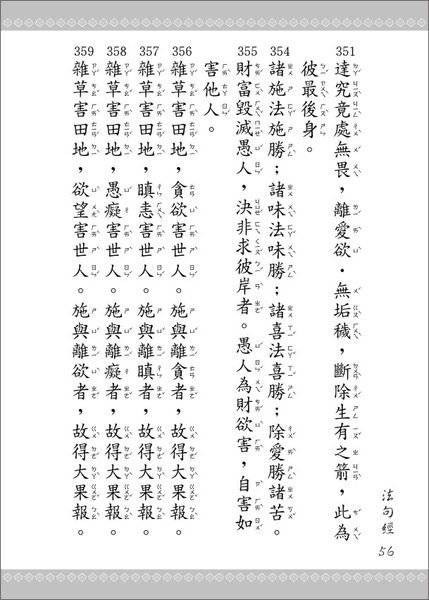 351 達究竟處無畏，離愛欲．無垢穢，斷除生有之箭，此為
彼最後身。
354 諸施法施勝；諸味法味勝；諸喜法喜勝；除愛勝諸苦。
355 財富毀滅愚人，決非求彼岸者。愚人為財欲害，自害如
害他人。
356 雜草害田地，貪欲害世人。施與離貪者，故得大果報。
357 雜草害田地，瞋恚害世人。施與離瞋者，故得大果報。
358 雜草害田地，愚癡害世人。施與離癡者，故得大果報。
359 雜草害田地，欲望害世人。施與離欲者，故得大果報。
法句經
56